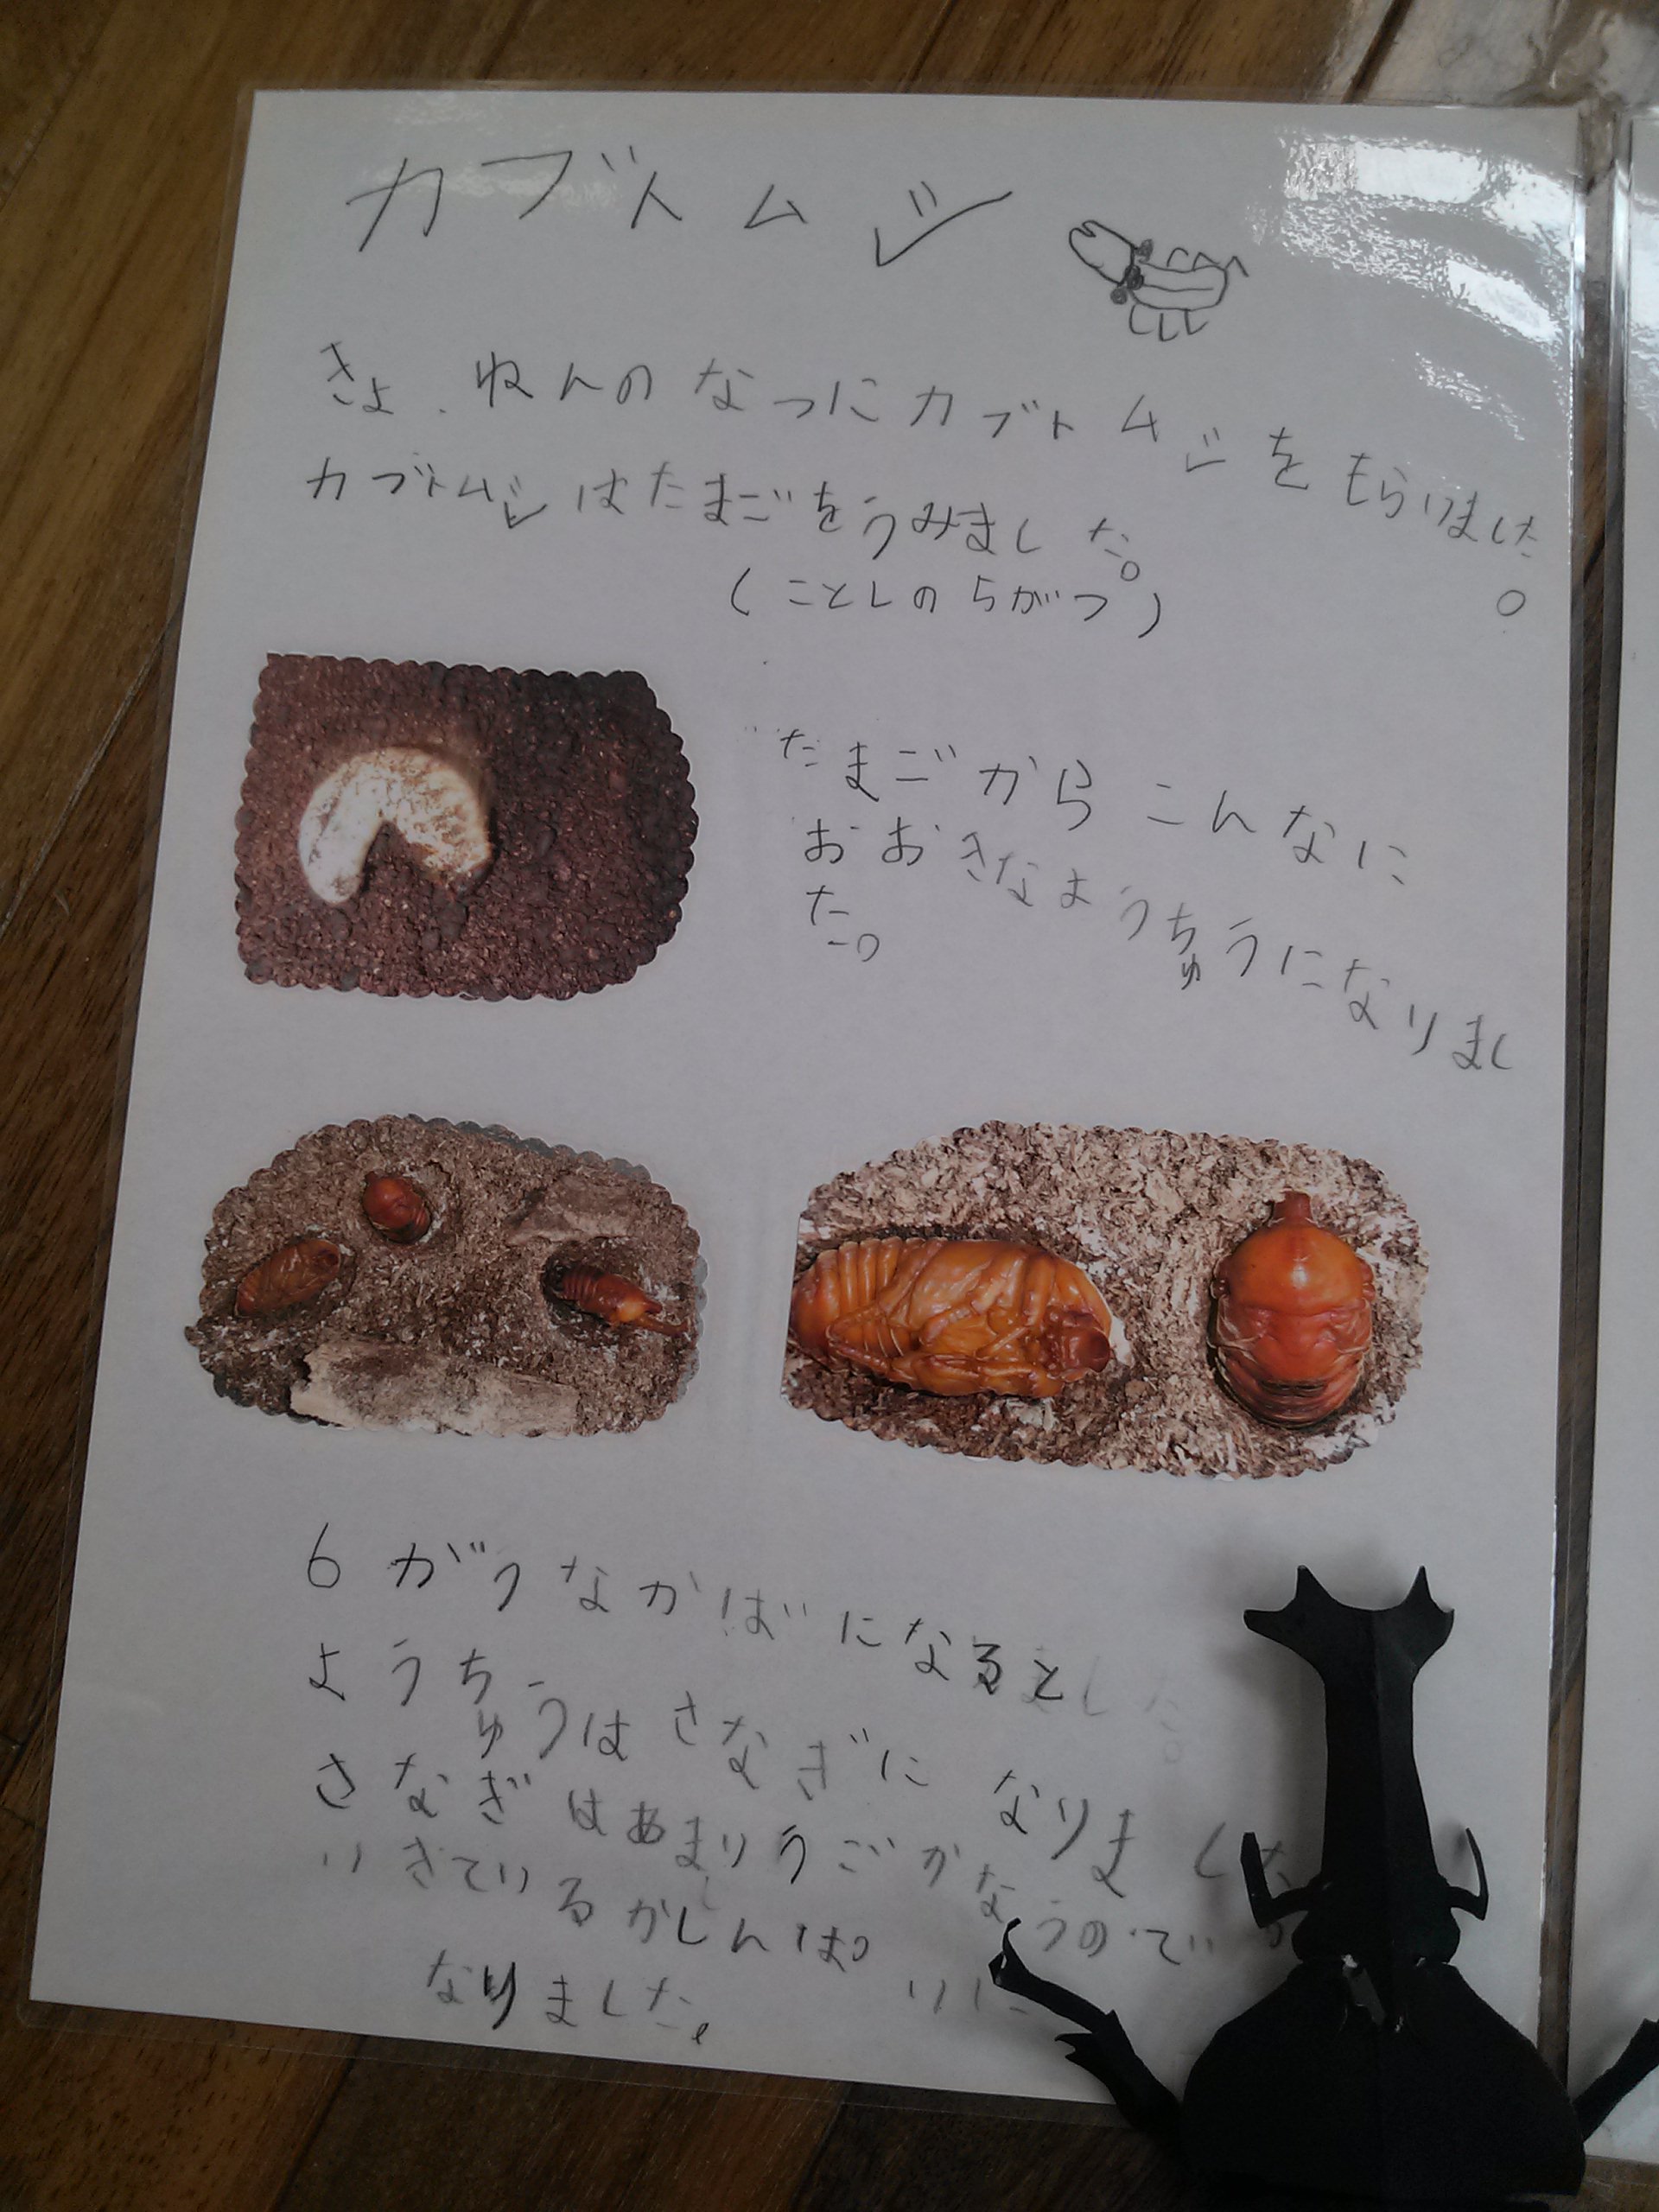 カブトムシ゛
きょ.ねんのなつにカブトムシをもらいました。
カブトムシはたまごをうみました。
(ことしの5がつ)
たまごからこんなに
おおきなようちゅうになりまし
た。
6がつなかばになると
ようちゅうはさなぎになりました
さなぎはあまりうごかなうので
いきているかしんぱ
なりました。